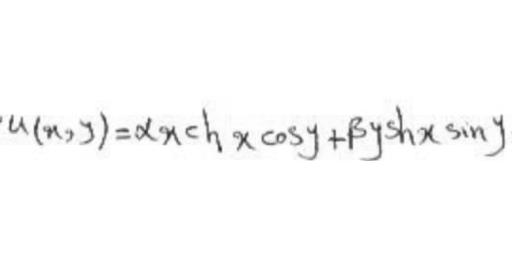 u(x,y)=αx ch x cosy+βy sh x sin y